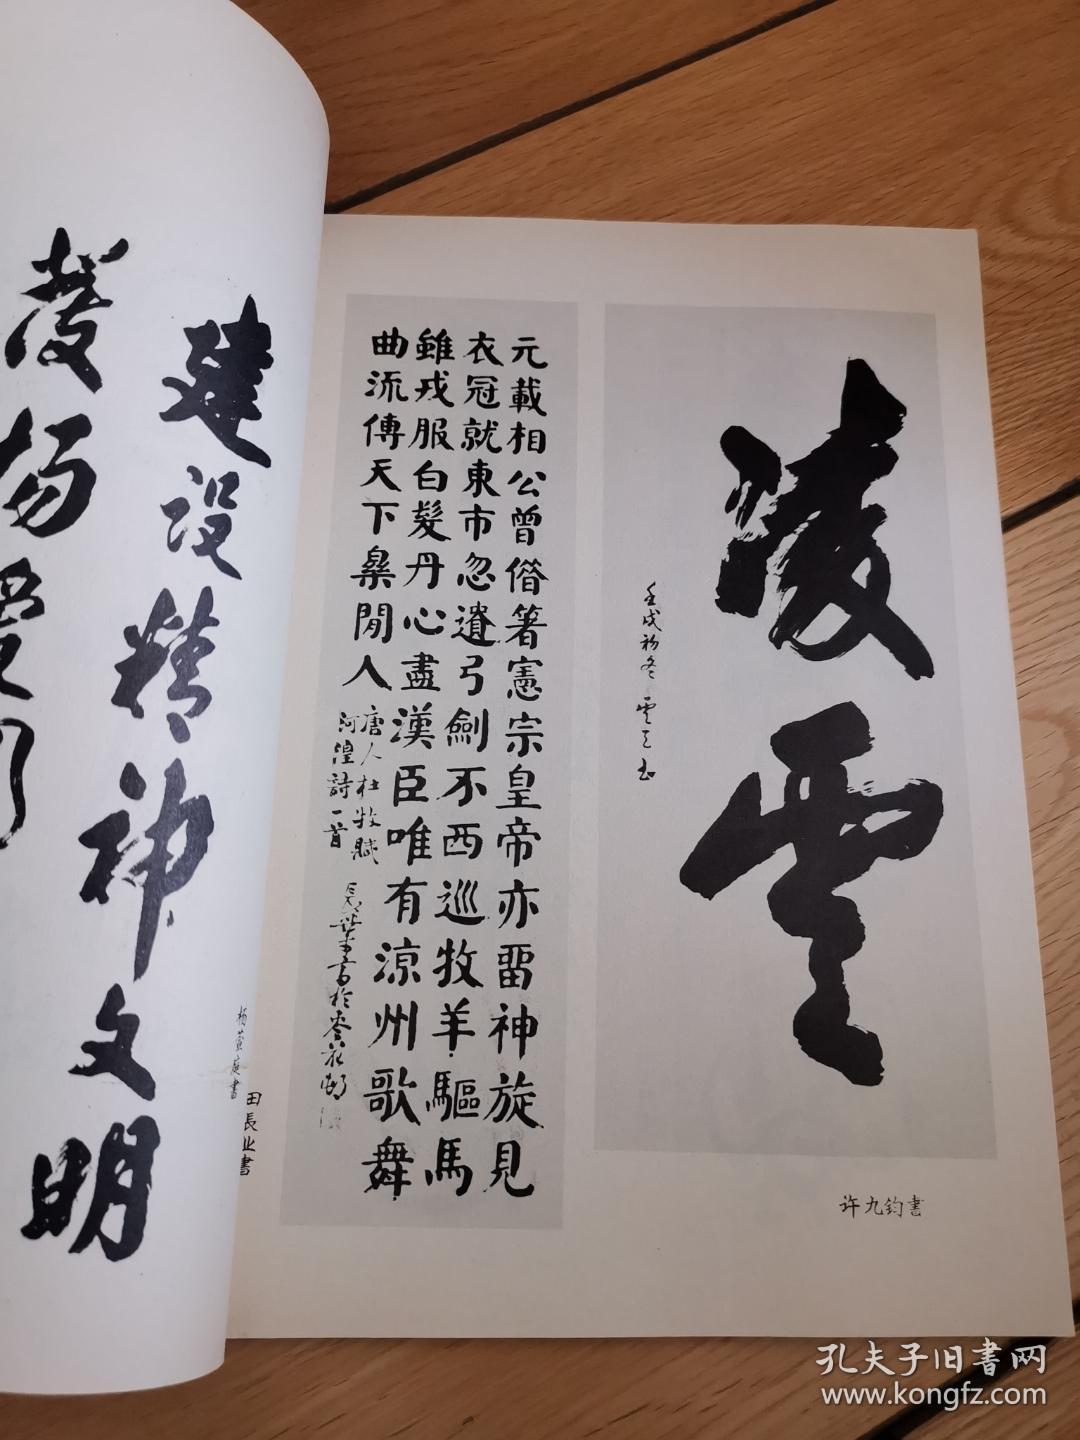 凌雲
壬戌初冬
许九鈞書
元載相公曾借箸憲宗皇帝亦留神旋見
衣冠就東市忽遺弓劍不西巡牧羊驅馬
雖戎服白髮丹心盡漢臣唯有涼州歌舞
曲流傳天下樂閒人
唐人杜牧賦
河湟詩一首
田長业書
建设精神文明
楊萱庭書
發揚愛
孔夫子旧書网
www.kongfz.com